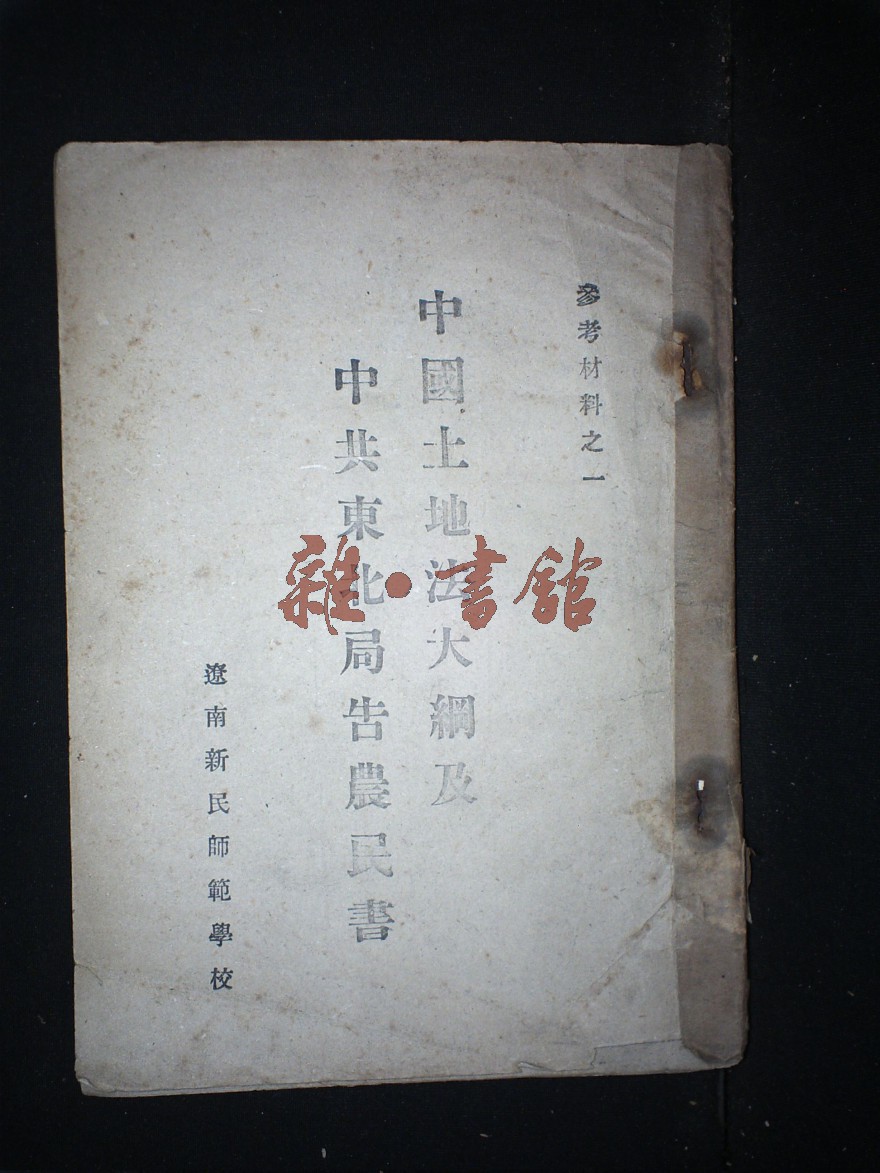 參考材料之一
中國土地法大綱及
中共東北局告農民書
遼南新民師範學校
雜·書館